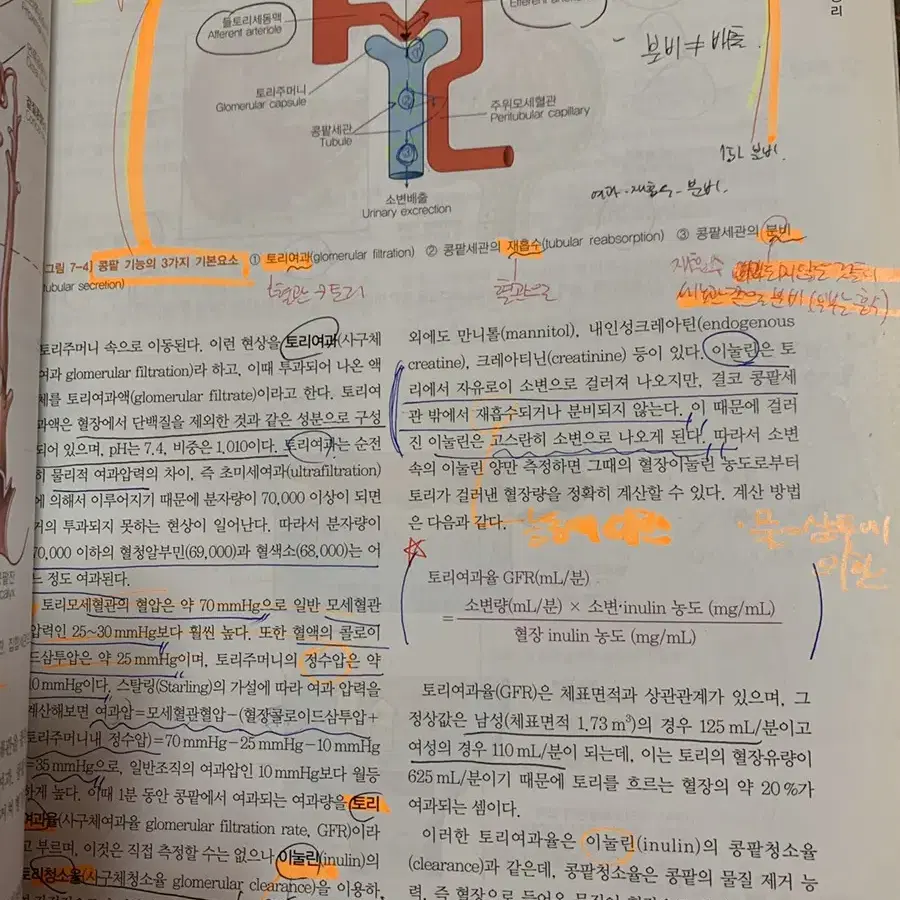 리
들토리세동맥
Afferent arteriole
Efferent arteriole
분비≠배출.
토리주머니
Glomerular capsule
콩팥세관
Tubule
주위모세혈관
Peritubular capillary
①
②
③
소변배출
Urinary excrection
분비.
여과·재흡수-분비.
그림 7-4] 콩팥 기능의 3가지 기본요소 ① 토리여과(glomerular filtration) ② 콩팥세관의 재흡수(tubular reabsorption) ③ 콩팥세관의 분비
tubular secretion)
혈관→토리
혈관으로
재흡수
토리주머니 속으로 이동된다. 이런 현상을 토리여과(사구체
여과 glomerular filtration)라 하고, 이때 투과되어 나온 액
체를 토리여과액(glomerular filtrate)이라고 한다. 토리여
과액은 혈장에서 단백질을 제외한 것과 같은 성분으로 구성
되어 있으며, pH는 7.4, 비중은 1.010이다. 토리여과는 순전
히 물리적 여과압력의 차이, 즉 초미세여과(ultrafiltration)
에 의해서 이루어지기 때문에 분자량이 70,000 이상이 되면
거의 투과되지 못하는 현상이 일어난다. 따라서 분자량이
70,000 이하의 혈청알부민(69,000)과 혈색소(68,000)는 어
느 정도 여과된다.
토리모세혈관의 혈압은 약 70 mmHg으로 일반 모세혈관
압력인 25~30 mmHg보다 훨씬 높다. 또한 혈액의 콜로이
드삼투압은 약 25 mmHg이며, 토리주머니의 정수압은 약
10 mmHg이다. 스탈링(Starling)의 가설에 따라 여과 압력을
계산해보면 여과압=모세혈관혈압-(혈장콜로이드삼투압+
토리주머니내 정수압)=70 mmHg-25 mmHg-10 mmHg
=35 mmHg으로, 일반조직의 여과압인 10 mmHg보다 월등
하게 높다. 이때 1분 동안 콩팥에서 여과되는 여과량을 토리
여과율(사구체여과율 glomerular filtration rate, GFR)이라
고 부르며, 이것은 직접 측정할 수는 없으나 이눌린(inulin)의
토리청소율(사구체청소율 glomerular clearance)을 이용하,
외에도 만니톨(mannitol), 내인성크레아틴(endogenous
creatine), 크레아티닌(creatinine) 등이 있다. 이눌린은 토
리에서 자유로이 소변으로 걸러져 나오지만, 결코 콩팥세
관 밖에서 재흡수되거나 분비되지 않는다. 이 때문에 걸러
진 이눌린은 고스란히 소변으로 나오게 된다. 따라서 소변
속의 이눌린 양만 측정하면 그때의 혈장이눌린 농도로부터
토리가 걸러낸 혈장량을 정확히 계산할 수 있다. 계산 방법
은 다음과 같다.
토리여과율 GFR(mL/분)
= 소변량(mL/분) × 소변·inulin 농도 (mg/mL)
혈장 inulin 농도 (mg/mL)
토리여과율(GFR)은 체표면적과 상관관계가 있으며, 그
정상값은 남성(체표면적 1.73 m³)의 경우 125 mL/분이고
여성의 경우 110 mL/분이 되는데, 이는 토리의 혈장유량이
625 mL/분이기 때문에 토리를 흐르는 혈장의 약 20%가
여과되는 셈이다.
이러한 토리여과율은 이눌린(inulin)의 콩팥청소율
(clearance)과 같은데, 콩팥청소율은 콩팥의 물질 제거 능